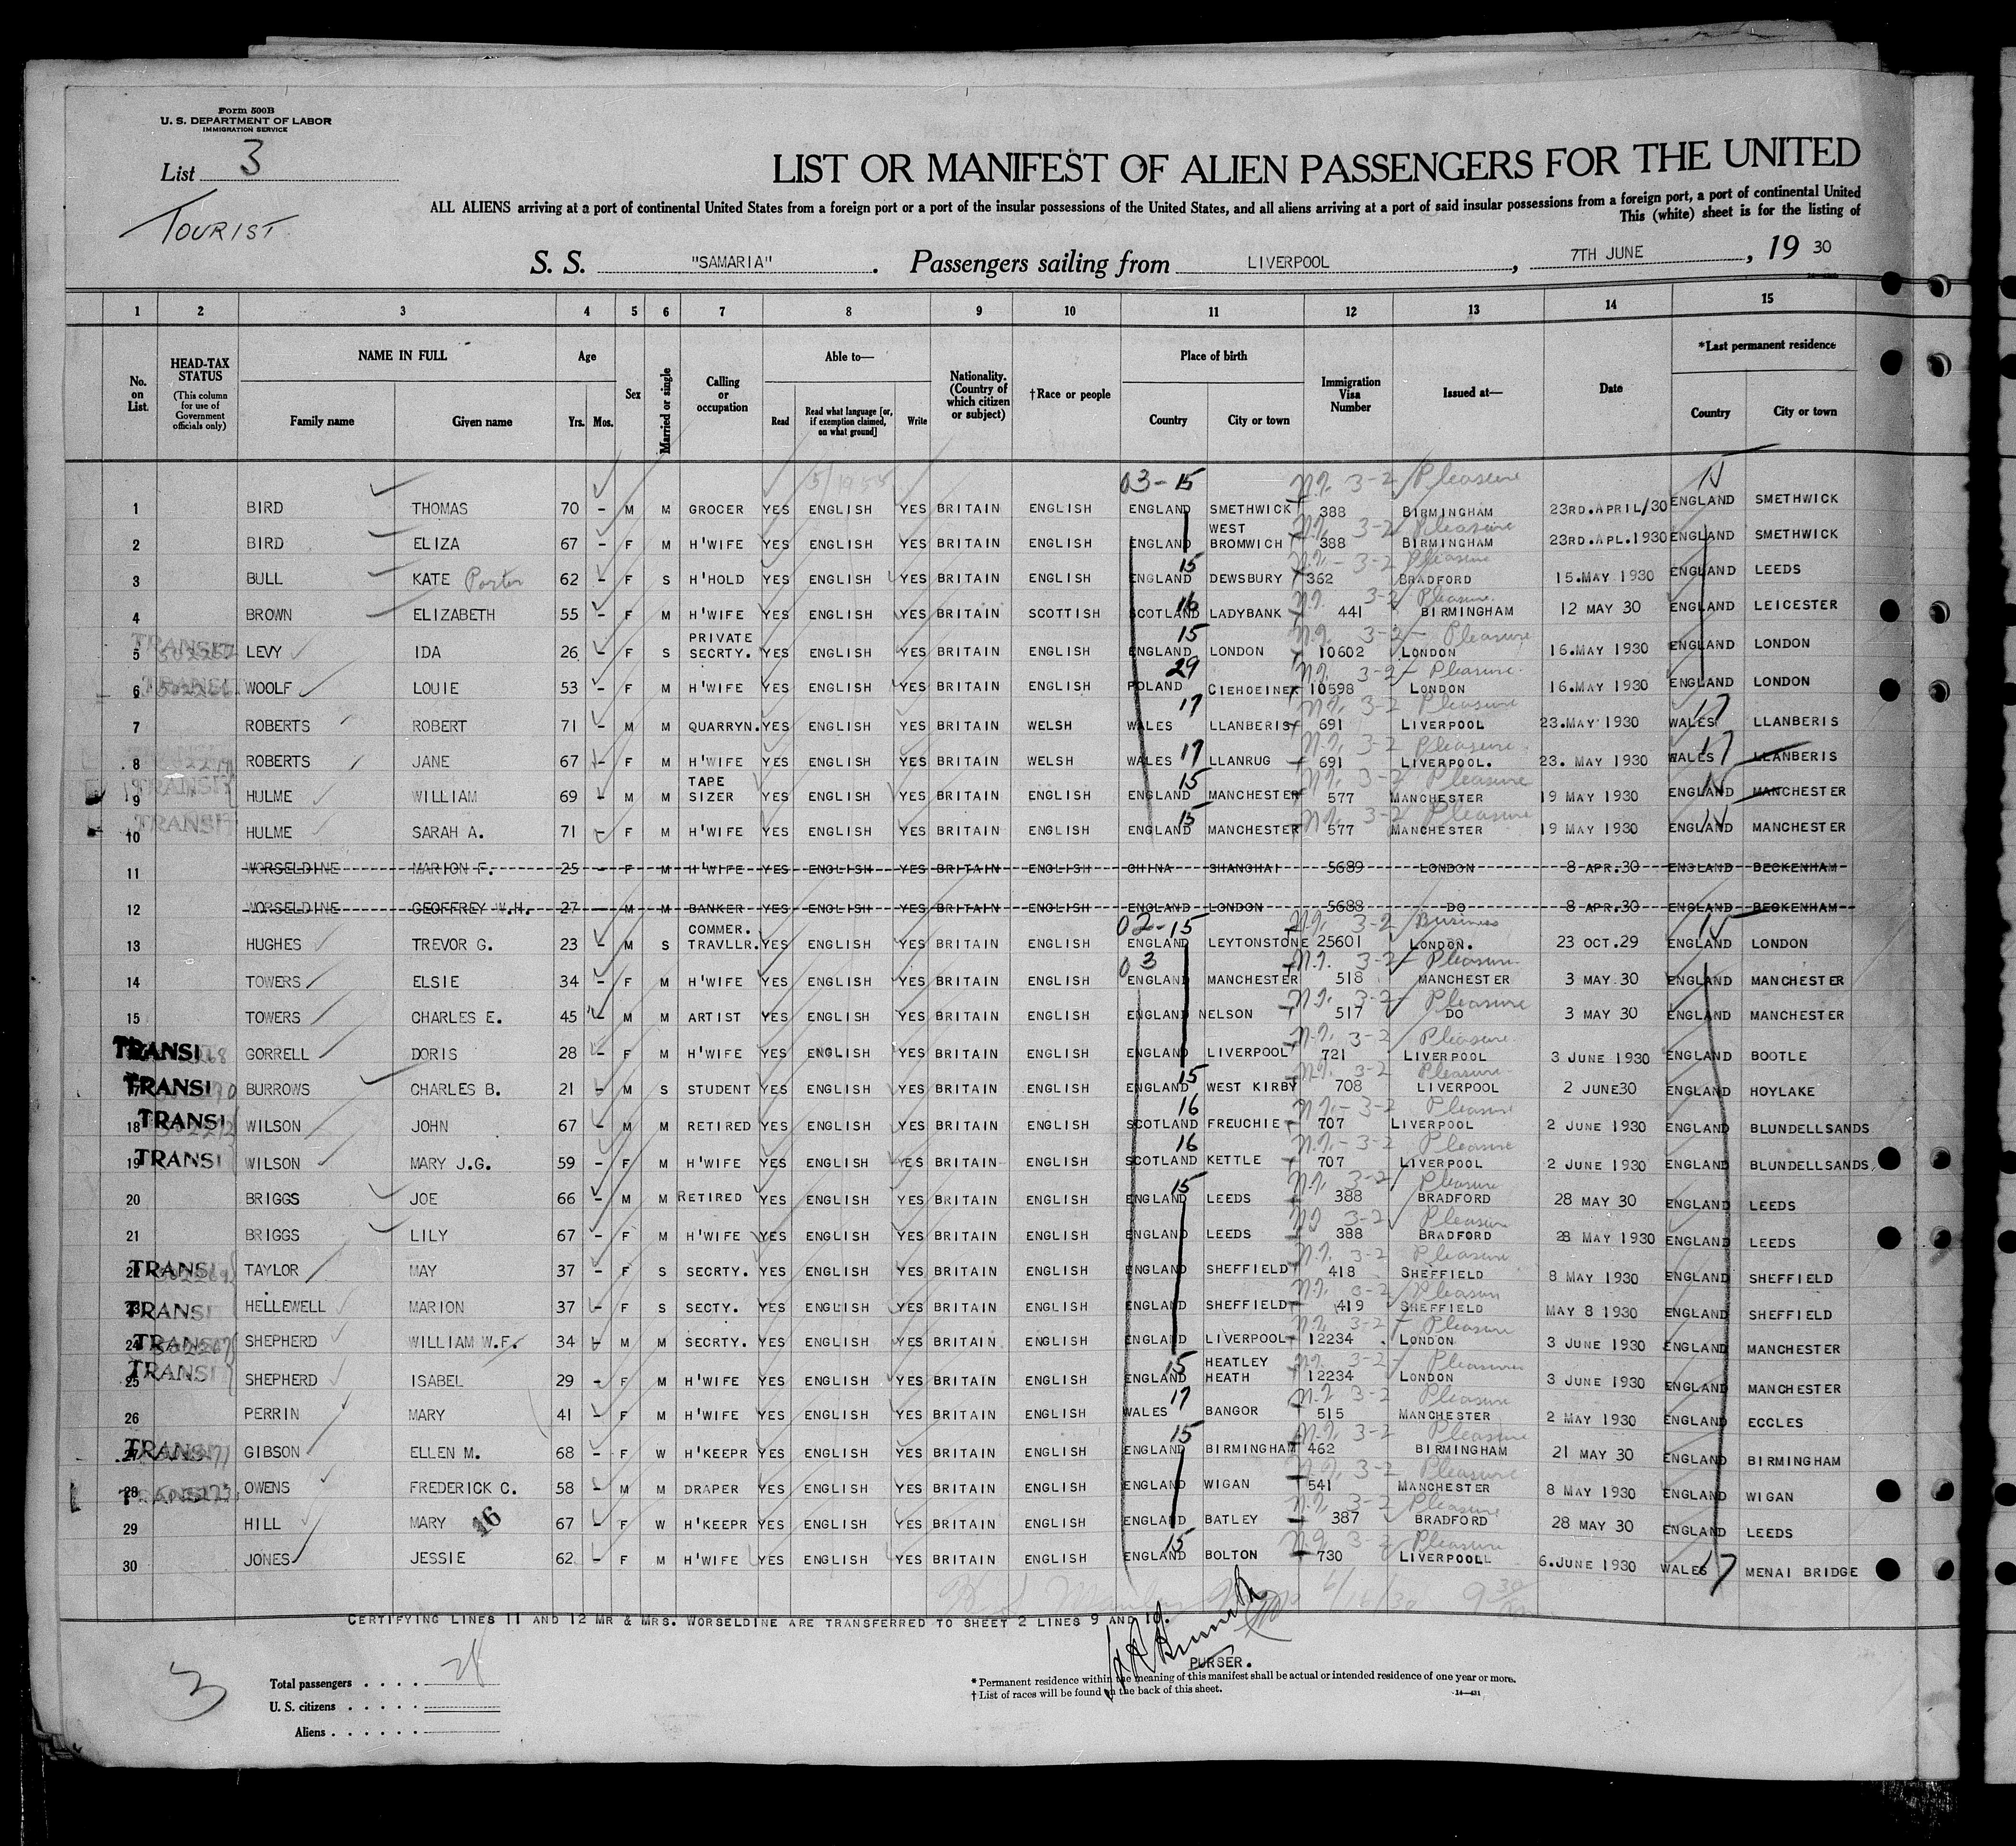 Form 500B
U. S. DEPARTMENT OF LABOR
IMMIGRATION SERVICE
List 3
TOURIST
LIST OR MANIFEST OF ALIEN PASSENGERS FOR THE UNITED
ALL ALIENS arriving at a port of continental United States from a foreign port or a port of the insular possessions of the United States, and all aliens arriving at a port of said insular possessions from a foreign port, a port of continental United
This (white) sheet is for the listing of
S. S. "SAMARIA" . Passengers sailing from LIVERPOOL , 7TH JUNE , 19 30
1 2 3 4 5 6 7 8 9 10 11 12 13 14 15
No. on List. HEAD-TAX STATUS (This column for use of Government officials only) NAME IN FULL Family name Given name Age Yrs. Mos. Sex Married or single Calling or occupation Able to— Read Read what language [or, if exemption claimed, on what ground] Write Nationality. (Country of which citizen or subject) †Race or people Place of birth Country City or town Immigration Visa Number Issued at— Date *Last permanent residence Country City or town
03-15 N.I. 3-2 Pleasure
1 BIRD THOMAS 70 – M M GROCER YES ENGLISH YES BRITAIN ENGLISH ENGLAND SMETHWICK 388 BIRMINGHAM 23RD.APRIL/30 ENGLAND SMETHWICK
N.I. 3-2 Pleasure
2 BIRD ELIZA 67 – F M H'WIFE YES ENGLISH YES BRITAIN ENGLISH ENGLAND WEST BROMWICH 388 BIRMINGHAM 23RD.APL.1930 ENGLAND SMETHWICK
15 N.I. 3-2 Pleasure
3 BULL KATE Porter 62 – F S H'HOLD YES ENGLISH YES BRITAIN ENGLISH ENGLAND DEWSBURY 362 BRADFORD 15.MAY 1930 ENGLAND LEEDS
16 N.I. 3-2 Pleasure
4 BROWN ELIZABETH 55 – F M H'WIFE YES ENGLISH YES BRITAIN SCOTTISH SCOTLAND LADYBANK 441 BIRMINGHAM 12 MAY 30 ENGLAND LEICESTER
TRANSIT 15 N.I. 3-2 Pleasure
5 LEVY IDA 26 – F S PRIVATE SECRTY. YES ENGLISH YES BRITAIN ENGLISH ENGLAND LONDON 10602 LONDON 16.MAY 1930 ENGLAND LONDON
TRANSIT 29 N.I. 3-2 Pleasure
6 WOOLF LOUIE 53 – F M H'WIFE YES ENGLISH YES BRITAIN ENGLISH POLAND CIEHOEINEK 10598 LONDON 16.MAY 1930 ENGLAND LONDON
17 N.I. 3-2 Pleasure 17
7 ROBERTS ROBERT 71 – M M QUARRYN. YES ENGLISH YES BRITAIN WELSH WALES LLANBERIS 691 LIVERPOOL 23.MAY 1930 WALES LLANBERIS
17 N.I. 3-2 Pleasure 17
8 ROBERTS JANE 67 – F M H'WIFE YES ENGLISH YES BRITAIN WELSH WALES LLANRUG 691 LIVERPOOL. 23. MAY 1930 WALES LLANBERIS
TRANSIT 15 N.I. 3-2 Pleasure
9 HULME WILLIAM 69 – M M TAPE SIZER YES ENGLISH YES BRITAIN ENGLISH ENGLAND MANCHESTER 577 MANCHESTER 19 MAY 1930 ENGLAND MANCHESTER
TRANSIT 15 N.I. 3-2 Pleasure
10 HULME SARAH A. 71 F M H'WIFE YES ENGLISH YES BRITAIN ENGLISH ENGLAND MANCHESTER 577 MANCHESTER 19 MAY 1930 ENGLAND MANCHESTER
11 WORSELDINE MARION F. 25 – F M H'WIFE YES ENGLISH YES BRITAIN ENGLISH CHINA SHANGHAI 5689 LONDON 8 APR.30 ENGLAND BECKENHAM
12 WORSELDINE GEOFFREY W.H. 27 – M M BANKER YES ENGLISH YES BRITAIN ENGLISH ENGLAND LONDON 5688 DO 8 APR.30 ENGLAND BECKENHAM
02-15 N.I. 3-2 Business
13 HUGHES TREVOR G. 23 – M S COMMER. TRAVLLR. YES ENGLISH YES BRITAIN ENGLISH ENGLAND LEYTONSTONE 25601 LONDON. 23 OCT.29 ENGLAND LONDON
03 N.I. 3-2 Pleasure
14 TOWERS ELSIE 34 – F M H'WIFE YES ENGLISH YES BRITAIN ENGLISH ENGLAND MANCHESTER 518 MANCHESTER 3 MAY 30 ENGLAND MANCHESTER
N.I. 3-2 Pleasure
15 TOWERS CHARLES E. 45 – M M ARTIST YES ENGLISH YES BRITAIN ENGLISH ENGLAND NELSON 517 DO 3 MAY 30 ENGLAND MANCHESTER
N.I. 3-2 Pleasure
TRANSI GORRELL DORIS 28 – F M H'WIFE YES ENGLISH YES BRITAIN ENGLISH ENGLAND LIVERPOOL 721 LIVERPOOL 3 JUNE 1930 ENGLAND BOOTLE
15 N.I. 3-2 Pleasure
TRANSI BURROWS CHARLES B. 21 – M S STUDENT YES ENGLISH YES BRITAIN ENGLISH ENGLAND WEST KIRBY 708 LIVERPOOL 2 JUNE30 ENGLAND HOYLAKE
TRANSI 16 N.I. 3-2 Pleasure
18 WILSON JOHN 67 – M M RETIRED YES ENGLISH YES BRITAIN ENGLISH SCOTLAND FREUCHIE 707 LIVERPOOL 2 JUNE 1930 ENGLAND BLUNDELLSANDS
TRANSI 16 N.I. 3-2 Pleasure
19 WILSON MARY J.G. 59 – F M H'WIFE YES ENGLISH YES BRITAIN ENGLISH SCOTLAND KETTLE 707 LIVERPOOL 2 JUNE 1930 ENGLAND BLUNDELLSANDS
15 N.I. 3-2 Pleasure
20 BRIGGS JOE 66 – M M RETIRED YES ENGLISH YES BRITAIN ENGLISH ENGLAND LEEDS 388 BRADFORD 28 MAY 30 ENGLAND LEEDS
N.I. 3-2 Pleasure
21 BRIGGS LILY 67 – F M H'WIFE YES ENGLISH YES BRITAIN ENGLISH ENGLAND LEEDS 388 BRADFORD 28 MAY 1930 ENGLAND LEEDS
N.I. 3-2 Pleasure
22 TRANSI TAYLOR MAY 37 – F S SECRTY. YES ENGLISH YES BRITAIN ENGLISH ENGLAND SHEFFIELD 418 SHEFFIELD 8 MAY 1930 ENGLAND SHEFFIELD
N.I. 3-2 Pleasure
23 TRANSI HELLEWELL MARION 37 – F S SECTY. YES ENGLISH YES BRITAIN ENGLISH ENGLAND SHEFFIELD 419 SHEFFIELD MAY 8 1930 ENGLAND SHEFFIELD
N.I. 3-2 Pleasure
24 TRANSI SHEPHERD WILLIAM W.F. 34 M M SECRTY. YES ENGLISH YES BRITAIN ENGLISH ENGLAND LIVERPOOL 12234 LONDON 3 JUNE 1930 ENGLAND MANCHESTER
TRANSI 15 N.I. 3-2 Pleasure
25 SHEPHERD ISABEL 29 – F M H'WIFE YES ENGLISH YES BRITAIN ENGLISH ENGLAND HEATLEY HEATH 12234 LONDON 3 JUNE 1930 ENGLAND MANCHESTER
17 N.I. 3-2 Pleasure
26 PERRIN MARY 41 – F M H'WIFE YES ENGLISH YES BRITAIN ENGLISH WALES BANGOR 515 MANCHESTER 2 MAY 1930 ENGLAND ECCLES
15 N.I. 3-2 Pleasure
27 TRANSI GIBSON ELLEN M. 68 – F W H'KEEPR YES ENGLISH YES BRITAIN ENGLISH ENGLAND BIRMINGHAM 462 BIRMINGHAM 21 MAY 30 ENGLAND BIRMINGHAM
N.I. 3-2 Pleasure
28 TRANSI OWENS FREDERICK C. 58 – M M DRAPER YES ENGLISH YES BRITAIN ENGLISH ENGLAND WIGAN 541 MANCHESTER 8 MAY 1930 ENGLAND WIGAN
N.I. 3-2 Pleasure
29 HILL MARY 16 67 – F W H'KEEPR YES ENGLISH YES BRITAIN ENGLISH ENGLAND BATLEY 387 BRADFORD 28 MAY 30 ENGLAND LEEDS
15 N.I. 3-2 Pleasure
30 JONES JESSIE 62 – F M H'WIFE YES ENGLISH YES BRITAIN ENGLISH ENGLAND BOLTON 730 LIVERPOOLL 6.JUNE 1930 WALES 17 MENAI BRIDGE
6/16/30 9 30
CERTIFYING LINES 11 AND 12 MR & MRS. WORSELDINE ARE TRANSFERRED TO SHEET 2 LINES 9 AND 10.
PURSER.
3
Total passengers . . . .
U. S. citizens . . . . .
Aliens . . . . . .
* Permanent residence within the meaning of this manifest shall be actual or intended residence of one year or more.
† List of races will be found on the back of this sheet.